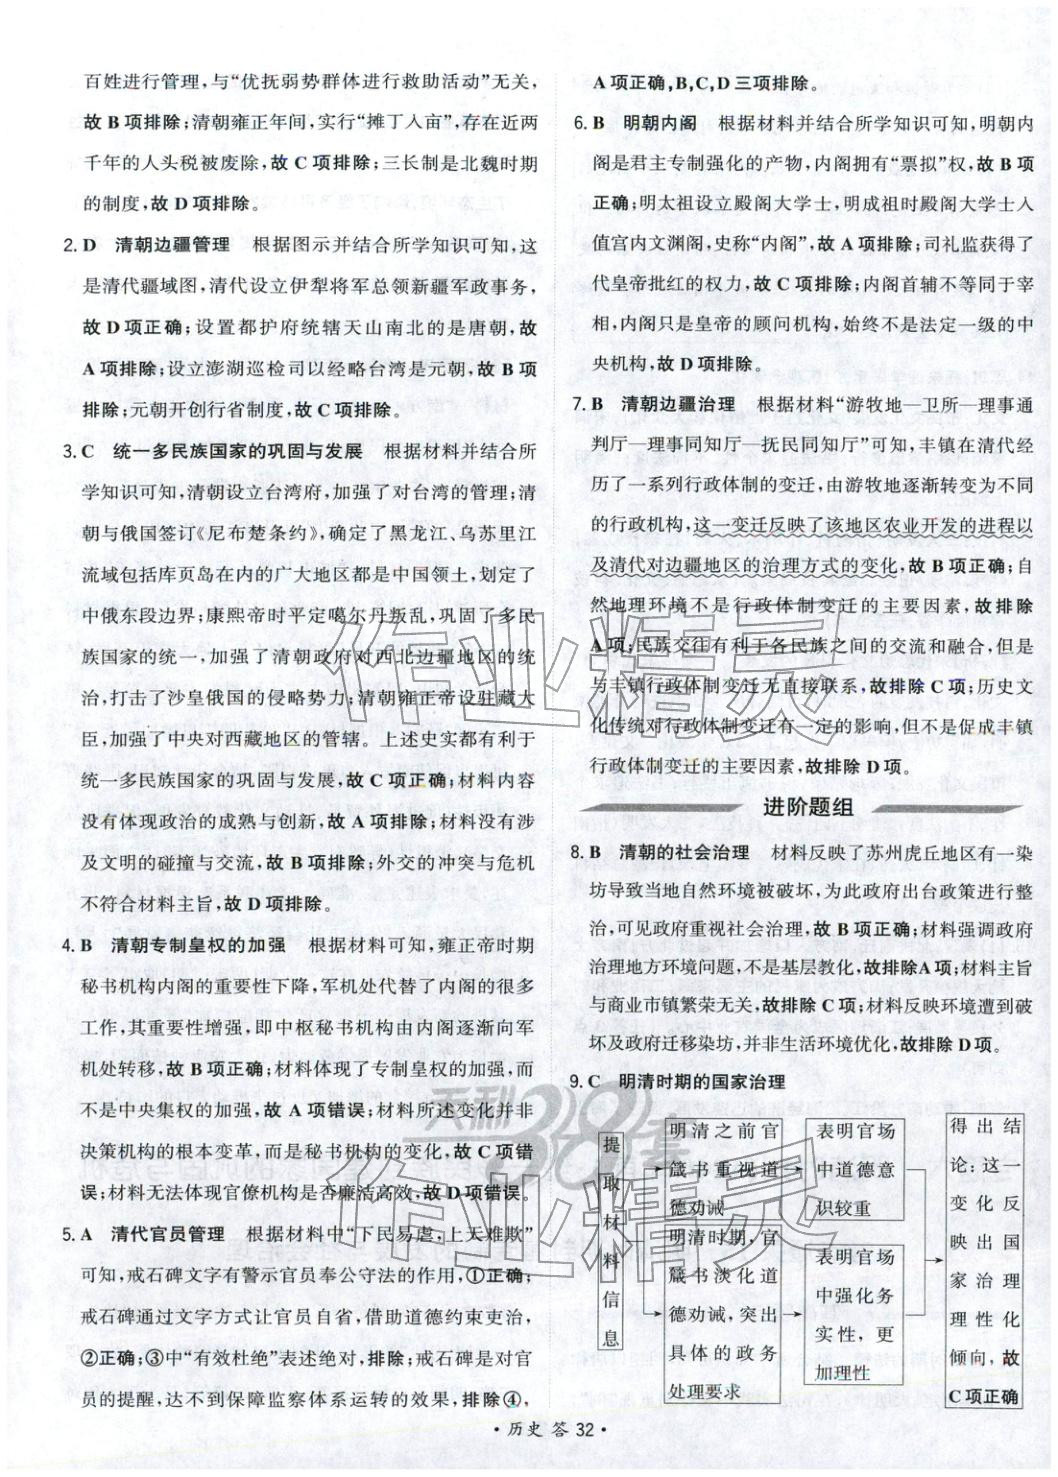 百姓进行管理，与“优抚弱势群体进行救助活动”无关，
故B项排除；清朝雍正年间，实行“摊丁入亩”，存在近两
千年的人头税被废除，故C项排除；三长制是北魏时期
的制度，故D项排除。
2. D 清朝边疆管理 根据图示并结合所学知识可知，这
是清代疆域图，清代设立伊犁将军总领新疆军政事务，
故D项正确；设置都护府统辖天山南北的是唐朝，故
A项排除；设立澎湖巡检司以经略台湾是元朝，故B项
排除；元朝开创行省制度，故C项排除。
3. C 统一多民族国家的巩固与发展 根据材料并结合所
学知识可知，清朝设立台湾府，加强了对台湾的管理；清
朝与俄国签订《尼布楚条约》，确定了黑龙江、乌苏里江
流域包括库页岛在内的广大地区都是中国领土，划定了
中俄东段边界；康熙帝时平定噶尔丹叛乱，巩固了多民
族国家的统一，加强了清朝政府对西北边疆地区的统
治，打击了沙皇俄国的侵略势力；清朝雍正帝设驻藏大
臣，加强了中央对西藏地区的管辖。上述史实都有利于
统一多民族国家的巩固与发展，故C项正确；材料内容
没有体现政治的成熟与创新，故A项排除；材料没有涉
及文明的碰撞与交流，故B项排除；外交的冲突与危机
不符合材料主旨，故D项排除。
4. B 清朝专制皇权的加强 根据材料可知，雍正帝时期
秘书机构内阁的重要性下降，军机处代替了内阁的很多
工作，其重要性增强，即中枢秘书机构由内阁逐渐向军
机处转移，故B项正确；材料体现了专制皇权的加强，而
不是中央集权的加强，故A项错误；材料所述变化并非
决策机构的根本变革，而是秘书机构的变化，故C项错
误；材料无法体现官僚机构是否廉洁高效，故D项错误。
5. A 清代官员管理 根据材料中“下民易虐，上天难欺”
可知，戒石碑文字有警示官员奉公守法的作用，①正确；
戒石碑通过文字方式让官员自省，借助道德约束吏治，
②正确；③中“有效杜绝”表述绝对，排除；戒石碑是对官
员的提醒，达不到保障监察体系运转的效果，排除④，
A项正确，B、C、D三项排除。
6. B 明朝内阁 根据材料并结合所学知识可知，明朝内
阁是君主专制强化的产物，内阁拥有“票拟”权，故B项
正确；明太祖设立殿阁大学士，明成祖时殿阁大学士入
值宫内文渊阁，史称“内阁”，故A项排除；司礼监获得了
代皇帝批红的权力，故C项排除；内阁首辅不等同于宰
相，内阁只是皇帝的顾问机构，始终不是法定一级的中
央机构，故D项排除。
7. B 清朝边疆治理 根据材料“游牧地—卫所—理事通
判厅—理事同知厅—抚民同知厅”可知，丰镇在清代经
历了一系列行政体制的变迁，由游牧地逐渐转变为不同
的行政机构，这一变迁反映了该地区农业开发的进程以
及清代对边疆地区的治理方式的变化，故B项正确；自
然地理环境不是行政体制变迁的主要因素，故排除
A项；民族交往有利于各民族之间的交流和融合，但是
与丰镇行政体制变迁无直接联系，故排除C项；历史文
化传统对行政体制变迁有一定的影响，但不是促成丰镇
行政体制变迁的主要因素，故排除D项。
进阶题组
8. B 清朝的社会治理 材料反映了苏州虎丘地区有一染
坊导致当地自然环境被破坏，为此政府出台政策进行整
治，可见政府重视社会治理，故B项正确；材料强调政府
治理地方环境问题，不是基层教化，故排除A项；材料主旨
与商业市镇繁荣无关，故排除C项；材料反映环境遭到破
坏及政府迁移染坊，并非生活环境优化，故排除D项。
9. C 明清时期的国家治理
提取材料信息
明清之前官
箴书重视道
德劝诫
表明官场
中道德意
识较重
明清时期，官
箴书淡化道
德劝诫，突出
具体的政务
处理要求
表明官场
中强化务
实性，更
加理性
得出结
论：这一
变化反
映出国
家治理
理性化
倾向，故
C项正确
作业精灵
天利38套
作业精灵
·历史 答 32·